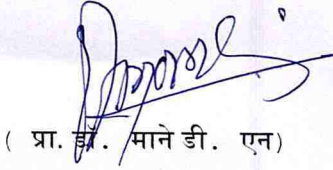 ( प्रा. डॉ. माने डी. एन)